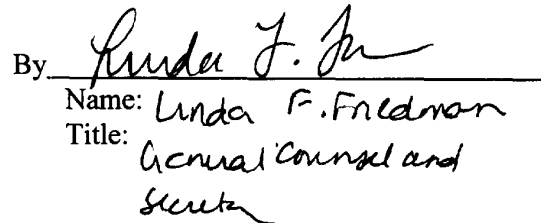 By Linda F. F
Name: Linda F. Friedman
Title:
General Counsel and
Secretary